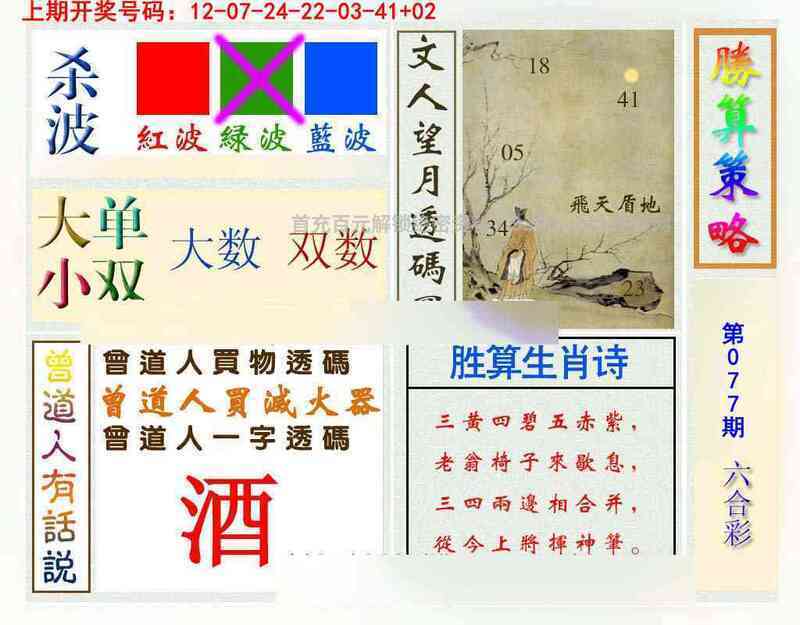 上期开奖号码：12-07-24-22-03-41+02
杀波
紅波 緑波 藍波
大小
单双
大数 双数
文人望月透碼
18
41
05
飛天盾地
34
23
勝算策略
第077期 六合彩
曾道人有話説
曾道人買物透碼
曾道人買滅火器
曾道人一字透碼
酒
胜算生肖诗
三黃四碧五赤紫，
老翁椅子來歇息，
三四兩邊相合并，
從今上將揮神筆。